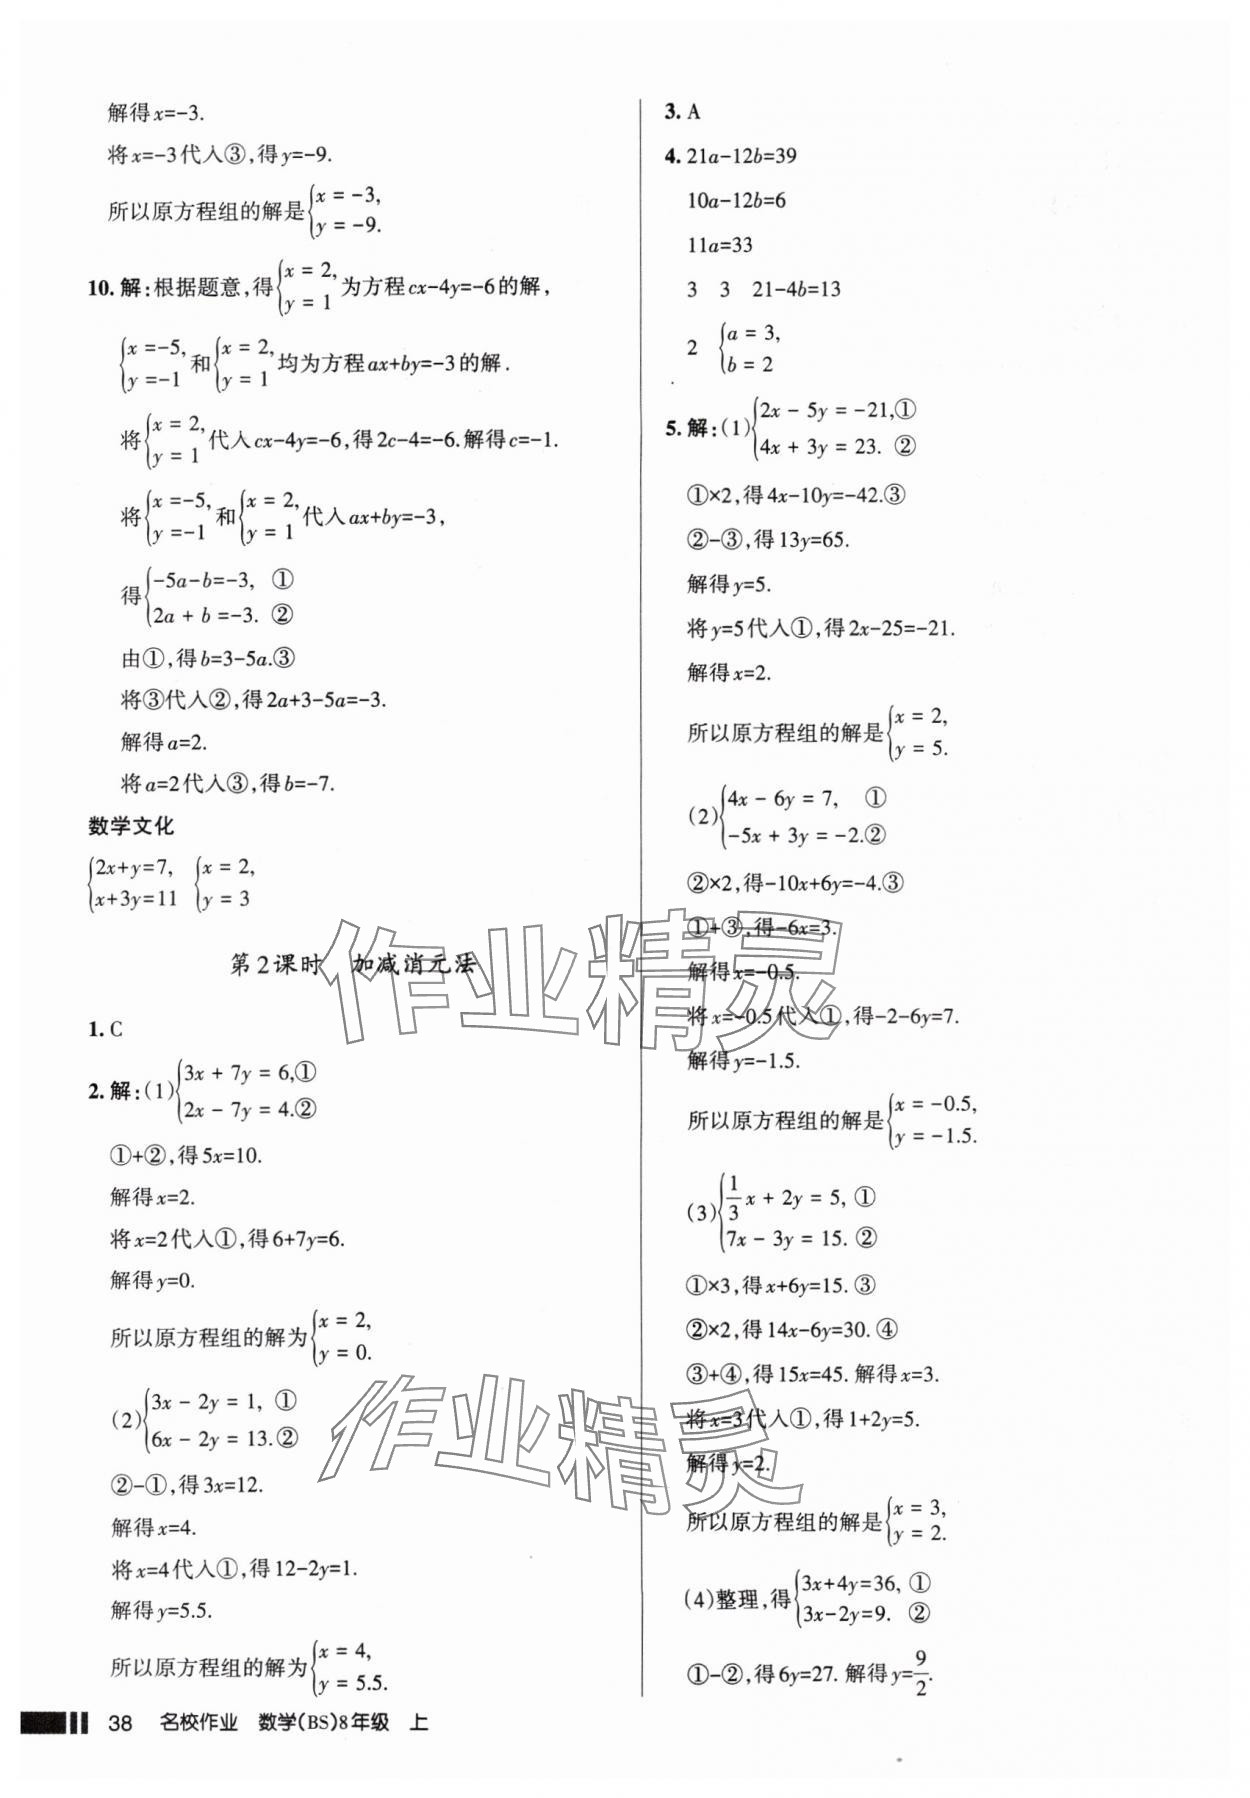 解得x=-3.
将x=-3代入③,得y=-9.
所以原方程组的解是{x = -3,
y = -9.
10. 解:根据题意,得{x = 2,
y = 1 为方程cx-4y=-6的解,
{x =-5,
y =-1 和{x = 2,
y = 1 均为方程ax+by=-3的解.
将{x = 2,
y = 1 代入cx-4y=-6,得2c-4=-6.解得c=-1.
将{x =-5,
y =-1 和{x = 2,
y = 1 代入ax+by=-3,
得{-5a-b=-3, ①
2a + b =-3. ②
由①,得b=3-5a.③
将③代入②,得2a+3-5a=-3.
解得a=2.
将a=2代入③,得b=-7.
数学文化
{2x+y=7,
x+3y=11 {x = 2,
y = 3
第2课时 加减消元法
1. C
2. 解:(1){3x + 7y = 6,①
2x - 7y = 4.②
①+②,得5x=10.
解得x=2.
将x=2代入①,得6+7y=6.
解得y=0.
所以原方程组的解为{x = 2,
y = 0.
(2){3x - 2y = 1, ①
6x - 2y = 13.②
②-①,得3x=12.
解得x=4.
将x=4代入①,得12-2y=1.
解得y=5.5.
所以原方程组的解为{x = 4,
y = 5.5.
3. A
4. 21a-12b=39
10a-12b=6
11a=33
3 3 21-4b=13
2 {a = 3,
b = 2
5. 解:(1){2x - 5y = -21,①
4x + 3y = 23. ②
①×2,得4x-10y=-42.③
②-③,得13y=65.
解得y=5.
将y=5代入①,得2x-25=-21.
解得x=2.
所以原方程组的解是{x = 2,
y = 5.
(2){4x - 6y = 7, ①
-5x + 3y = -2.②
②×2,得-10x+6y=-4.③
①+③,得-6x=3.
解得x=-0.5.
将x=-0.5代入①,得-2-6y=7.
解得y=-1.5.
所以原方程组的解是{x = -0.5,
y = -1.5.
(3){1/3 x + 2y = 5, ①
7x - 3y = 15. ②
①×3,得x+6y=15. ③
②×2,得14x-6y=30. ④
③+④,得15x=45. 解得x=3.
将x=3代入①,得1+2y=5.
解得y=2.
所以原方程组的解是{x = 3,
y = 2.
(4)整理,得{3x+4y=36, ①
3x-2y=9. ②
①-②,得6y=27. 解得y=9/2.
作业精灵
作业精灵
38 名校作业 数学(BS)8年级 上